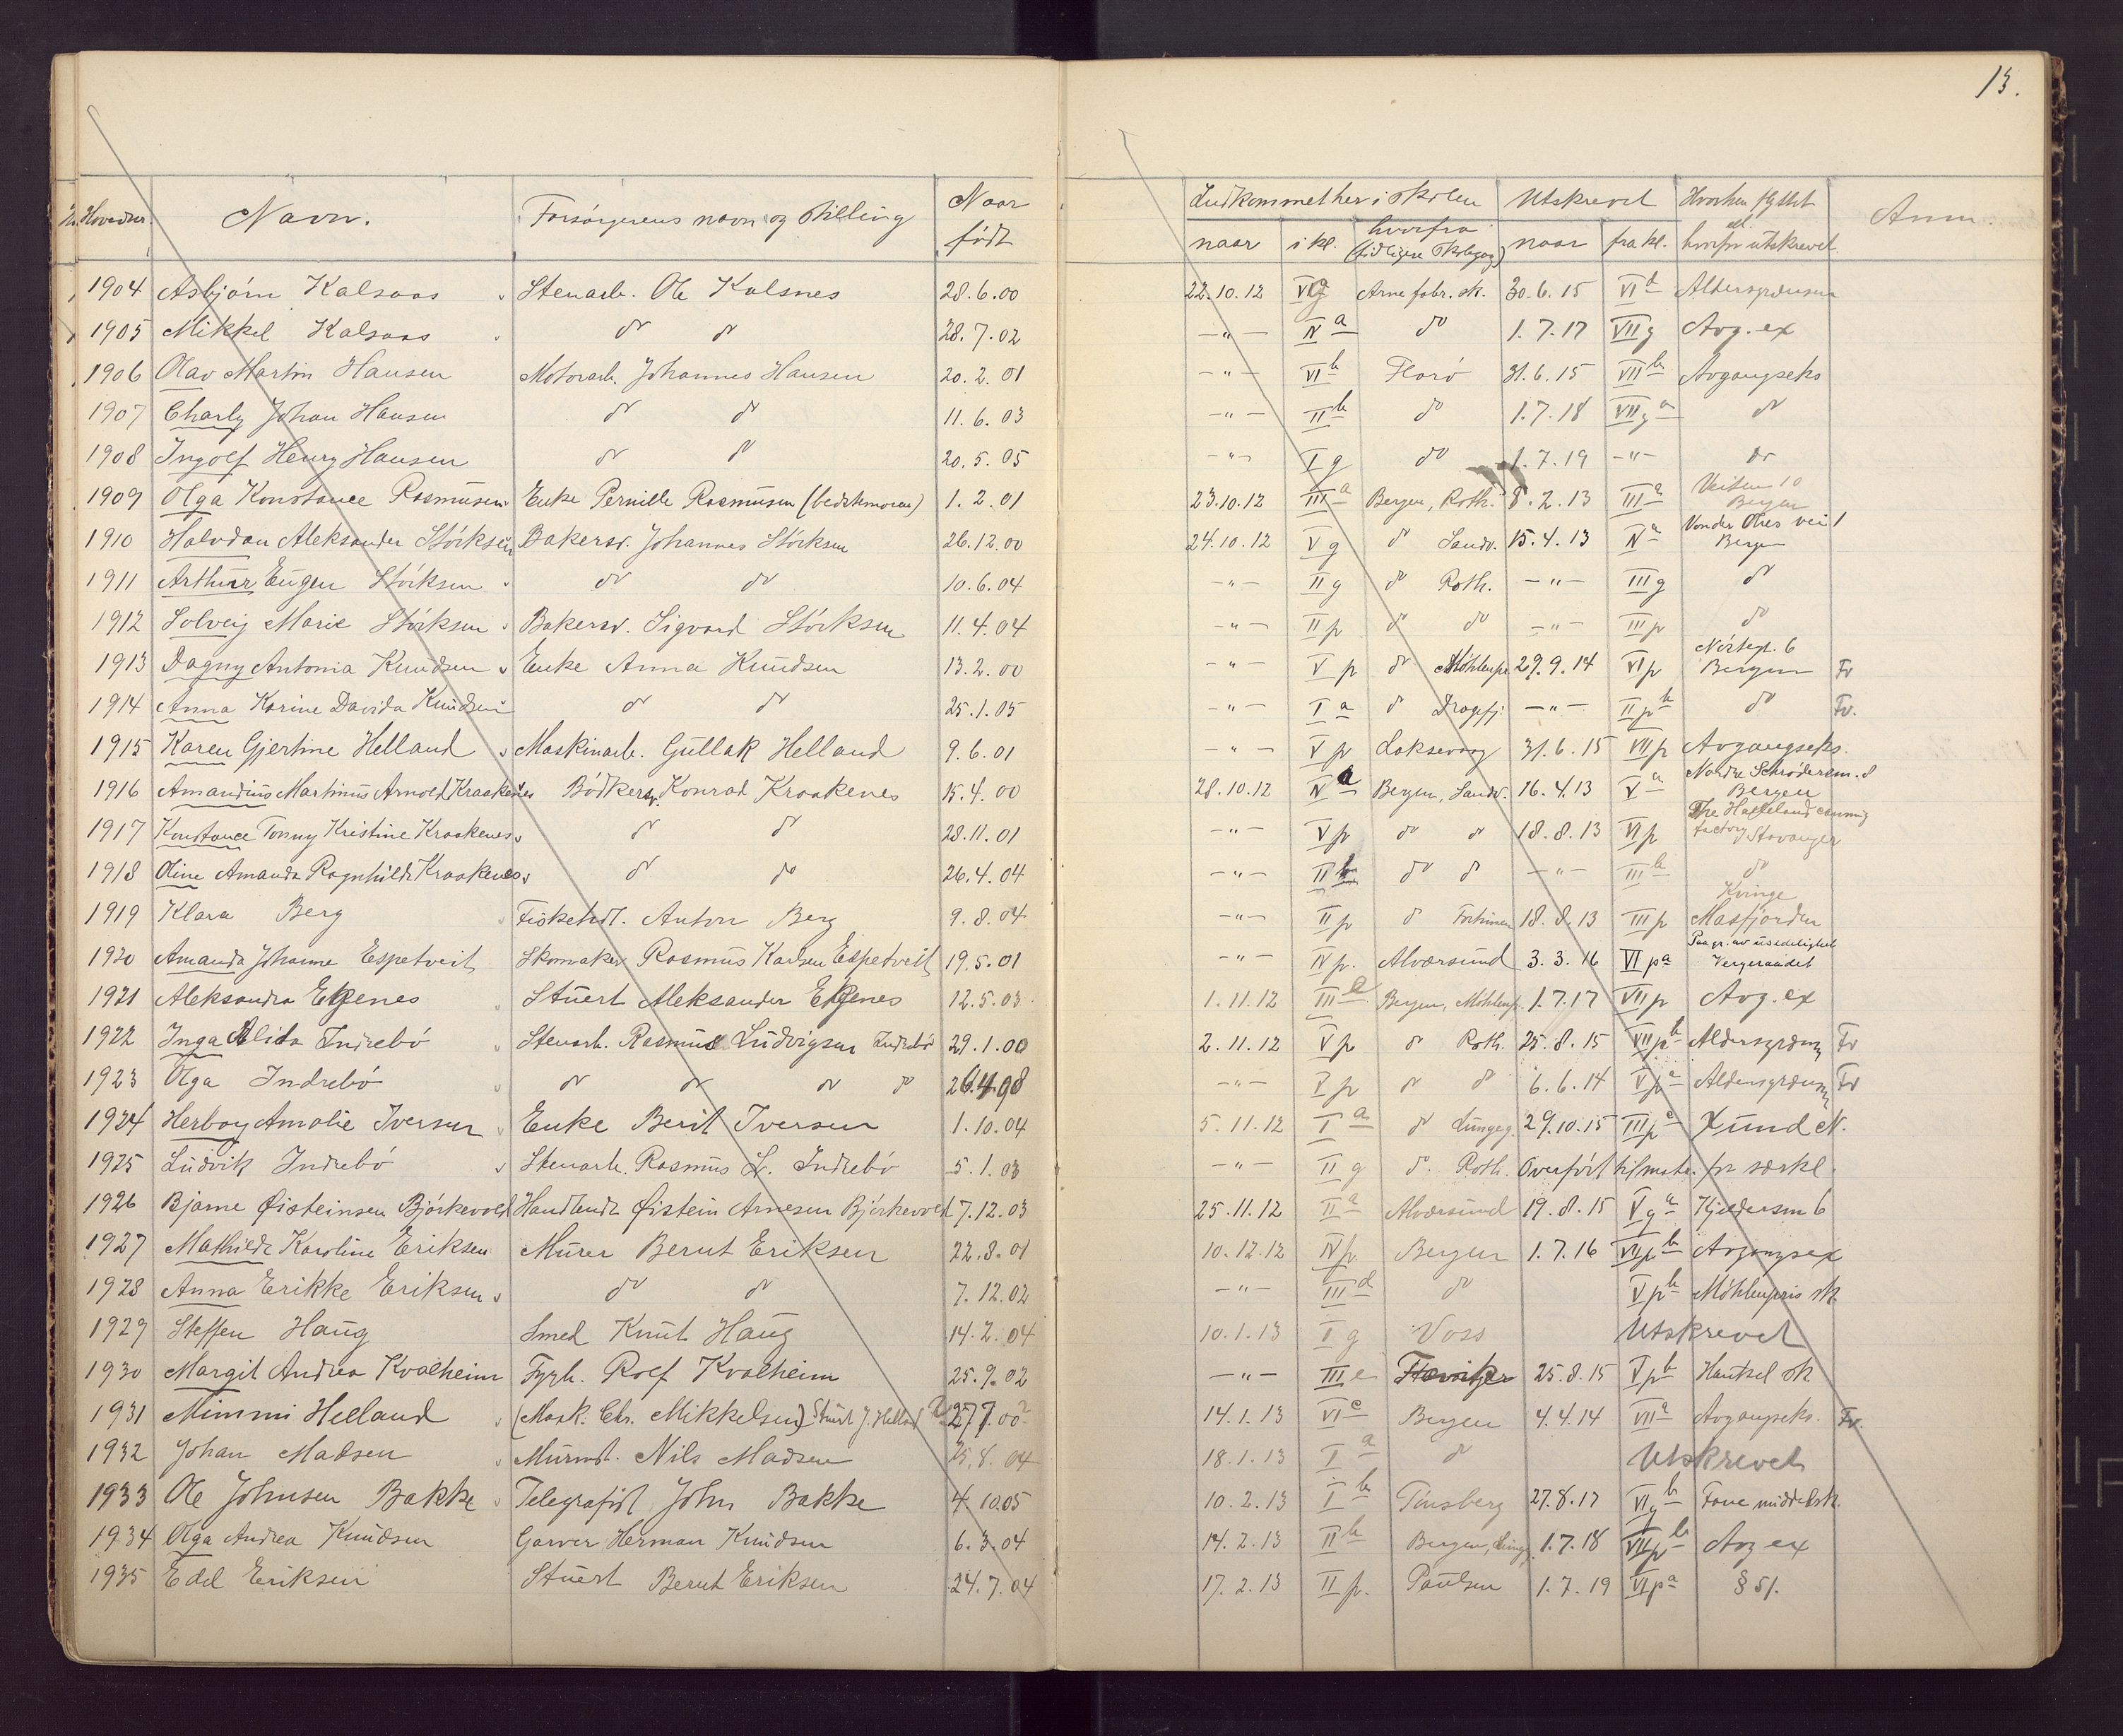 13.
Hovednr. Navn. Forsørgerens navn og stilling Naar født Indkommet her i skolen Utskrevet Hvorhen flyttet el. hvorfor utskrevet Anm.
naar i kl. hvorfra (tidligere skolegang) naar fra kl.
1904 Asbjørn Kalsaas Stenarb. Ole Kalsnes 28.6.00 22.10.12 V g Arne fabr. sk. 30.6.15 VI d Aldersgrænsen
1905 Mikkel Kalsaas do do 28.7.02 -"- IV a do 1.7.17 VII g Avg. ex
1906 Olav Martin Hansen Motorarb. Johannes Hansen 20.2.01 -"- VI b Florø 31.6.15 VII b Avgangseks
1907 Charly Johan Hansen do do 11.6.03 -"- II b do 1.7.18 VII g a do
1908 Ingolf Henry Hansen do do 20.5.05 -"- I g do 1.7.19 -"- do
1909 Olga Konstance Rasmusen Enke Pernille Rasmusen (bedstemoren) 1.2.01 23.10.12 III a Bergen, Roth. 8.2.13 III a Veiten 10 Bergen
1910 Halvdan Aleksander Störksen Bakersv. Johannes Störksen 26.12.00 24.10.12 V g do Sandv. 15.4.13 IV a Von der Ohes vei 1 Bergen
1911 Arthur Eugen Störksen do do 10.6.04 -"- II g do Roth. -"- III g do
1912 Solveig Marie Störksen Bakersv. Sigvard Störksen 11.4.04 -"- II p do do -"- III p do
1913 Dagny Antonia Knudsen Enke Anna Knudsen 13.2.00 -"- V p do Möhlenpr. 29.9.14 VI p Nöstegt. 6 Bergen Fv
1914 Anna Karine Davida Knudsen do do 25.1.05 -"- I a do Dragefj. -"- II p b do Fv.
1915 Karen Gjertine Helland Maskinarb. Gullak Helland 9.6.01 -"- V p Laksevaag 31.6.15 VII p Avgangseks.
1916 Amandius Martinus Arnold Kraakenes Bödkersv. Konrad Kraakenes 15.4.00 28.10.12 IV a Bergen, Sandv. 16.4.13 V a Nordre Schrödersm. 8 Bergen
1917 Konstance Tonny Kristine Kraakenes do do 28.11.01 -"- V p do do 18.8.13 VI p The Hatteland canning factory Stavanger
1918 Oline Amanda Ragnhild Kraakenes do do 26.4.04 -"- II b do do -"- III b do
1919 Klara Berg Fiskehdl. Anton Berg 9.8.04 -"- II p do Fortunen 18.8.13 III p Kvinge Masfjorden
1920 Amanda Johanne Espetveit Skomaker Rasmus Karlsen Espetveit 19.5.01 -"- IV p. Alværsund 3.3.16 VI p a Paa gr. av usedelighet Vergeraadet
1921 Aleksandra Egenes Stuert Aleksander Egenes 12.5.03 1.11.12 III a Bergen, Möhlenp. 1.7.17 VII p Avg. ex
1922 Inga Alida Indrebö Stenarb. Rasmus Ludvigsen Indrebö 29.1.00 2.11.12 V p do Roth. 25.8.15 VII p b Aldersgrænsen Fv
1923 Olga Indrebö do do do do 26.4.98 -"- V p do do 6.6.14 V p a Aldersgrænsen Fv
1924 Herboy Amalie Iversen Enke Berit Iversen 1.10.04 5.11.12 I a do Lungeg. 29.10.15 III p a Xund N.
1925 Ludvik Indrebö Stenarb. Rasmus L. Indrebö 5.1.03 -"- II g do. Roth. Overført til matr. for særkl.
1926 Bjarne Øisteinsen Björkevold Handlende Øistein Arnesen Björkevold 7.12.03 25.11.12 II a Alværsund 19.8.15 V g a Kjeldersm 6
1927 Mathilde Karoline Eriksen Murer Bernt Eriksen 22.8.01 10.12.12 IV p Bergen 1.7.16 VII p b Avgangsex
1928 Anna Erikke Eriksen do do 7.12.02 -"- III d do V p b Möhlenpris sk.
1929 Steffen Haug Smed Knut Haug 14.2.04 10.1.13 I g Voss Utskrevet
1930 Margit Andrea Kvalheim Fyrb. Rolf Kvalheim 25.9.02 -"- III e 25.8.15 V p b Haukel sk
1931 Mimmi Helland (Mask. Chr. Mikkelsen) Stuert J. Helland 27.7.00 ? 14.1.13 VI c Bergen 4.4.14 VII a Avgangseks. Fv.
1932 Johan Madsen Murmst. Nils Madsen 25.8.04 18.1.13 I a do Utskrevet
1933 Ole Johnsen Bakke Telegrafist John Bakke 4.10.05 10.2.13 I b Tönsberg 27.8.17 VI g b Fane middelsk.
1934 Olga Andrea Knudsen Garver Herman Knudsen 6.3.04 14.2.13 II b Bergen, Lungg. 1.7.18 VII p b Avg ex
1935 Edel Eriksen Stuert Bernt Eriksen 24.7.04 17.2.13 II p. Paulsen 1.7.19 VI p a § 51.